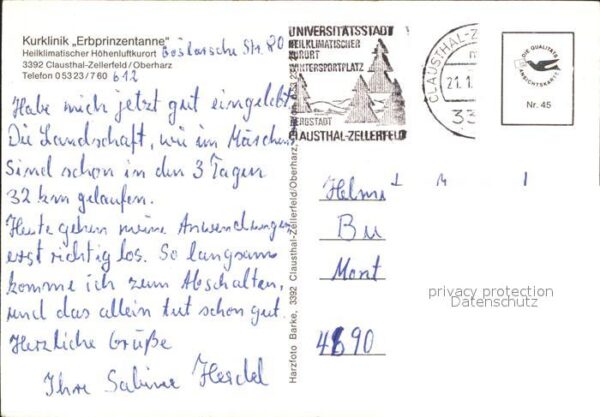 Kurklinik „Erbprinzentanne"
Heilklimatischer Höhenluftkurort
3392 Clausthal-Zellerfeld/Oberharz
Telefon 0 53 23 / 7 60
Goslarsche Str. 80
612
Habe mich jetzt gut eingelebt.
Die Landschaft, wie im Märchen.
Sind schon in den 3 Tagen
32 km gelaufen.
Heute gehen meine Anwendungen
erst richtig los. So langsam
komme ich zum Abschalten,
und das allein tut schon gut.
Herzliche Grüße
Ihre Sabine
Harzfoto Barke, 3392 Clausthal-Zellerfeld/Oberharz,
UNIVERSITÄTSSTADT
HEILKLIMATISCHER
KURORT
WINTERSPORTPLATZ
BERGSTADT
CLAUSTHAL-ZELLERFELD
CLAUSTHAL-Z
21.1.
33
DIE QUALITÄTS
ANSICHTSKARTE
Nr. 45
Helm
Bu
Mont
4690
privacy protection
Datenschutz